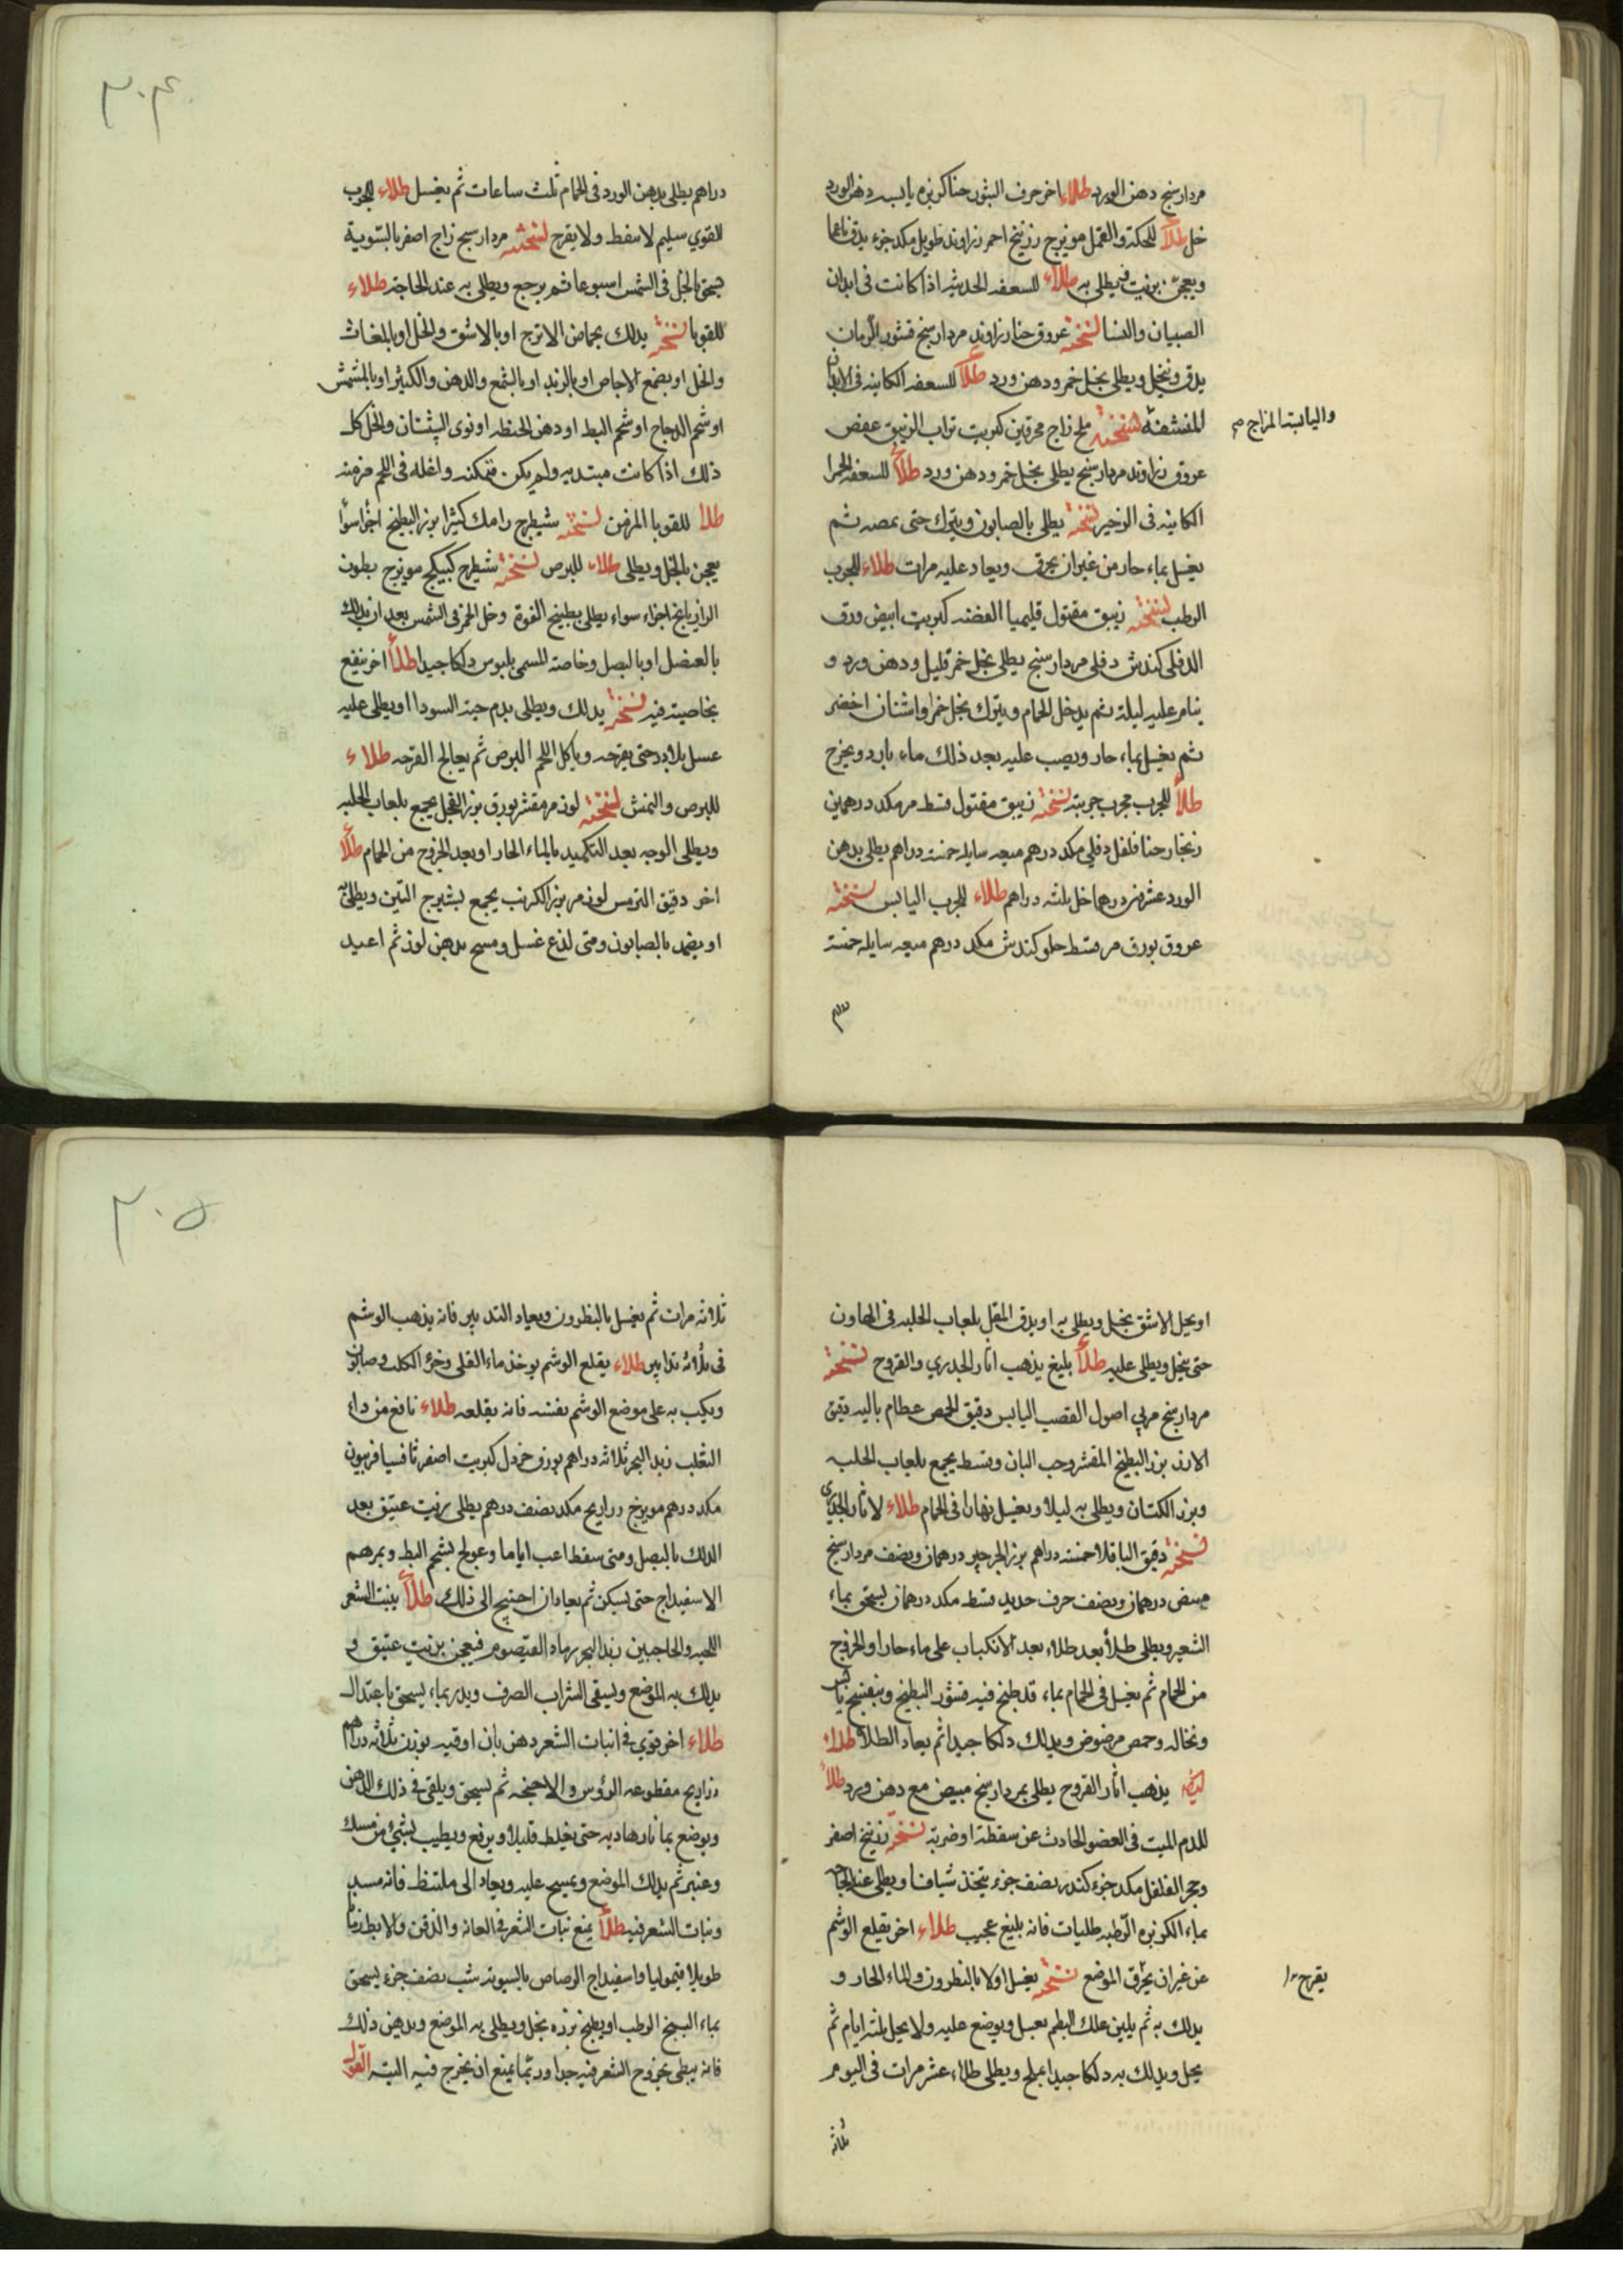 مردارسنج دهن الورد طلاء اخر خرف التنور حنا كزبره يابسه دهن الورد
خل طلاء للحكة والقمل مويزج زرنيخ احمر زراوند طويل مكد جزء يدق ناعما
ويعجن بزيت فيطلى به طلاء للسعفه الحديثه اذا كانت فى ابدان
الصبيان والنسا نسخته عروق حنا زراوند مردارسنج قشور الرمان
يدق وينخل ويطلى بخل خمر ودهن ورد طلاء للسعفه الكاينه فى الابدان
المنشفة
واليابسة المزاج صح
نسخته ملح زاج محرقين كبريت تراب الزيبق عفص
عروق زراوند مردارسنج يطلى بخل خمر ودهن ورد طلاء للسعفه الحمرا
الكاينه فى نسخته يطلى بالصابون ويترك حتى يمصه ثم
يغسل بماء حار من غير ان يحرق ويعاد عليه مرات طلاء للجرب
الرطب نسخته زيبق مقتول قليميا الفضه كبريت ابيض ورق
الدفلى كندش دفلى مردارسنج يطلى بخل خمر قليل ودهن ورد و
ينام عليه ليلة ثم يدخل الحمام ويترك بخل خمر واشنان اخضر
ثم يغسل بماء حار ويصب عليه بعد ذلك ماء بارد ويخرج
طلاء للجرب مجرب جربته نسخته زيبق مقتول قسط مر مكد درهمين
زنجار حنا فلفل دفلى مكد درهم ميعه سايله خمسه دراهم يطلى بدهن
الورد عشرين درهما خل ثلثه دراهم طلاء للجرب اليابس نسخته
عروق بورق مر قسط حلو كندش مكد درهم ميعه سايله خمسة
دراهم
٣٠٤
دراهم يطلى بدهن الورد فى الحمام ثلث ساعات ثم يغسل طلاء للجرب
القوي سليم لا يسقط ولا يقرح نسخته مردارسنج زاج اصفر بالسوية
يسحق بالخل فى الشمس اسبوعا ثم يرجع ويطلى به عند الحاجة طلاء
للقوبا نسخته يدلك بحماض الاترج او بالاشق والخل او بالمغاث
والخل او بصمغ الاجاص او بالزبد او بالشمع والدهن والكثيرا او بالمشمش
او شحم الدجاج او شحم البط او دهن الحنطه او نوى والخل كل
ذلك اذا كانت مبتديه ولم يكن متمكنه واغله فى اللحم مزمنه
طلاء للقوبا المزمن نسخته شيطرج رامك كثيرا بزر البطيخ اجزا سوا
يعجن بالخل ويطلى طلاء للبرص نسخته شيطرج كبيكج مويزج بطون
الرازيانج اجزاء سواء يطلى بطبيخ الفوة وخل الخمر فى الشمس بعد ان يدلك
بالعنصل او بالبصل وخاصته المسمى بلبوس دلكا جيدا طلاء اخر ينفع
بخاصيته فيه نسخته يدلك ويطلى بدم حية السودا او يطلى عليه
عسل بلادر حتى يقرحه وياكل اللحم البرص ثم يعالج القرحه طلاء
للبرص والنمش نسخته لوز مر مقشر بورق بزر الفجل يجمع بلعاب الحلبه
ويطلى الوجه بعد التكميد بالماء الحار او بعد الخروج من الحمام طلاء
اخر دقيق الترمس لوز مر بزر الكرنب يجمع بشيرج التين ويطلى به
او يضمد بالصابون ومتى لذع غسل ومسح بدهن لوز ثم اعيد
او يحل الاشق بخل ويطلى به او يدق المقل بلعاب الحلبه فى الهاون
حتى ينحل ويطلى عليه طلاء بليغ يذهب اثار الجدري والقروح نسخته
مردارسنج مربى اصول القصب اليابس دقيق الحمص عظام باليه دقيق
الارز بزر البطيخ المقشر وحب البان وقسط يجمع بلعاب الحلبه
وبزر الكتان ويطلى به ليلا ويغسل نهارا فى الحمام طلاء لاثار الجدري
نسخته دقيق الباقلا خمسه دراهم بزر الجرجير درهمان ونصف مردارسنج
مبيض درهمان ونصف خرف جديد قسط مكد درهمان يسحق بماء
الشعير ويطلى طلاء بعد طلاء بعد الانكباب على ماء حار او الخروج
من الحمام ثم يغسل فى الحمام بماء قد طبخ فيه قشور البطيخ وبنفسج يابس
ونخاله وحمص مرضوض ويدلك دلكا جيدا ثم يعاد الطلا طلاء
يذهب اثار القروح يطلى بمردارسنج مبيض مع دهن ورد طلاء
للدم الميت فى العضو الحادث عن سقطة او ضربة نسخته زرنيخ اصفر
وحجر الفلفل مكد جزء كندر نصف جزء يتخذ شيافا ويطلى عند الحاجه
بماء الكزبره الرطبه طليات فانه بليغ عجيب طلاء اخر يقلع الوشم
عن غير ان يحرق الموضع نسخته يغسل اولا بالنطرون والماء الحار و
يقرح
يدلك به ثم يلين علك البطم بعسل ويوضع عليه ولا يحل ثلثه ايام ثم
يحل ويدلك به دلكا جيدا بملح ويطلى طلاء عشر مرات فى اليوم
ثلاثه
٣٠٥
ثلاثه مرات ثم يغسل بالنطرون ويعاد التدبير فانه يذهب الوشم
فى ثلاثه تدابير طلاء يقلع الوشم يوخذ ماء القلى وخرء الكلب وصابون
ويكب به على موضع الوشم نفسه فانه يقلعه طلاء نافع من داء
الثعلب زبد البحر ثلاثه دراهم بورق خردل كبريت اصفر ثافسيا فربيون
مكد درهم مويزج ذراريح مكد نصف درهم يطلى بزيت عتيق بعد
الدلك بالبصل ومتى سقط اعب اياما وعولج بشحم البط ومرهم
الاسفيداج حتى يسكن ثم يعاد ان احتيج الى ذلك طلاء ينبت الشعر
اللحيه والحاجبين زبد البحر رماد القيصوم فيعجن بزيت عتيق و
يدلك به الموضع ويسقى الشراب الصرف ويدبر بماء يسحق باعتدال
طلاء اخر قوي فى انبات الشعر دهن بان اوقيه بوزن ثلاثه دراهم
ذراريح مقطوعه الرؤس والاجنحه ثم يسحق ويلقى فى ذلك الدهن
ويوضع بما نار هاديه حتى يغلظ قليلا ويرفع ويطيب بشئ من مسك
وعنبر ثم يدلك الموضع ويمسح عليه ويعاد الى ملتنظ فانه
ونبات الشعر فيه طلاء يمنع نبات الشعر فى العانه والذقن والابط زمانا
طويلا قيموليا واسفيداج الرصاص بالسويه شب نصف جزء يسحق
بماء البنج الرطب او يطبخ بزره بخل ويطلى به الموضع ويدهن ذلك
فانه يبطى بخروج الشعر فيه جدا وربما يمنع ان يخرج فيه البتة القول